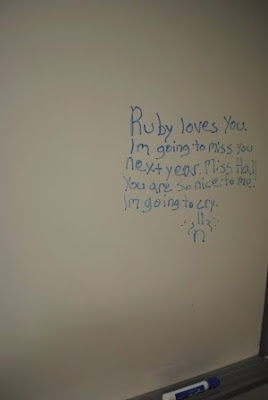 Ruby loves You.
Im going to miss you
next year. Miss Hall
You are so nice to me
Im going to cry.